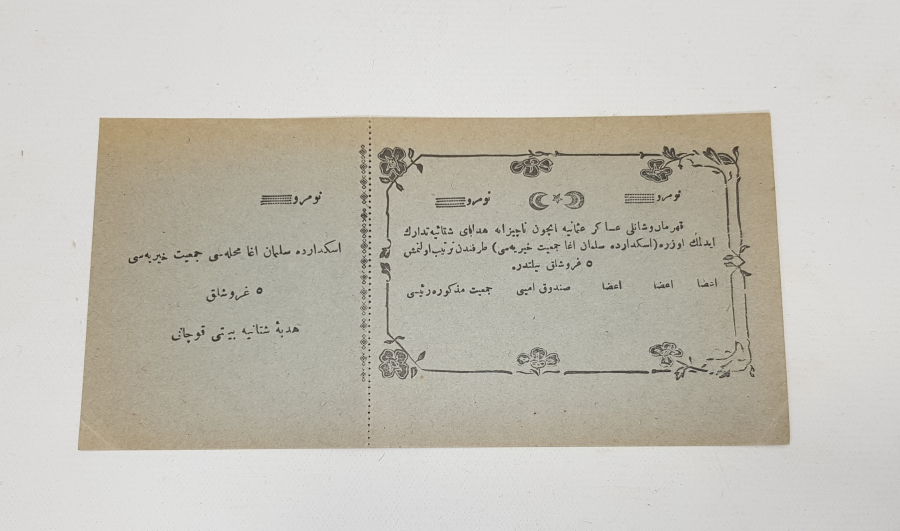 نومرو
نومرو
قهرمان وشانلی عساکر عثمانیه ایچون ناچیزانه هدایای شتائیه تدارك
ایدلمك اوزره (اسکدارده سلمان اغا جمعیت خیریه‌سی) طرفندن ترتیب اولنمش
٥ غروشلق بیلتدر.
اعضا اعضا اعضا صندوق امینی جمعیت مذکوره رئیسی
نومرو
اسکدارده سلمان اغا محله‌سی جمعیت خیریه‌سی
٥ غروشلق
هدیهٔ شتائیه بیلتی قوچانی